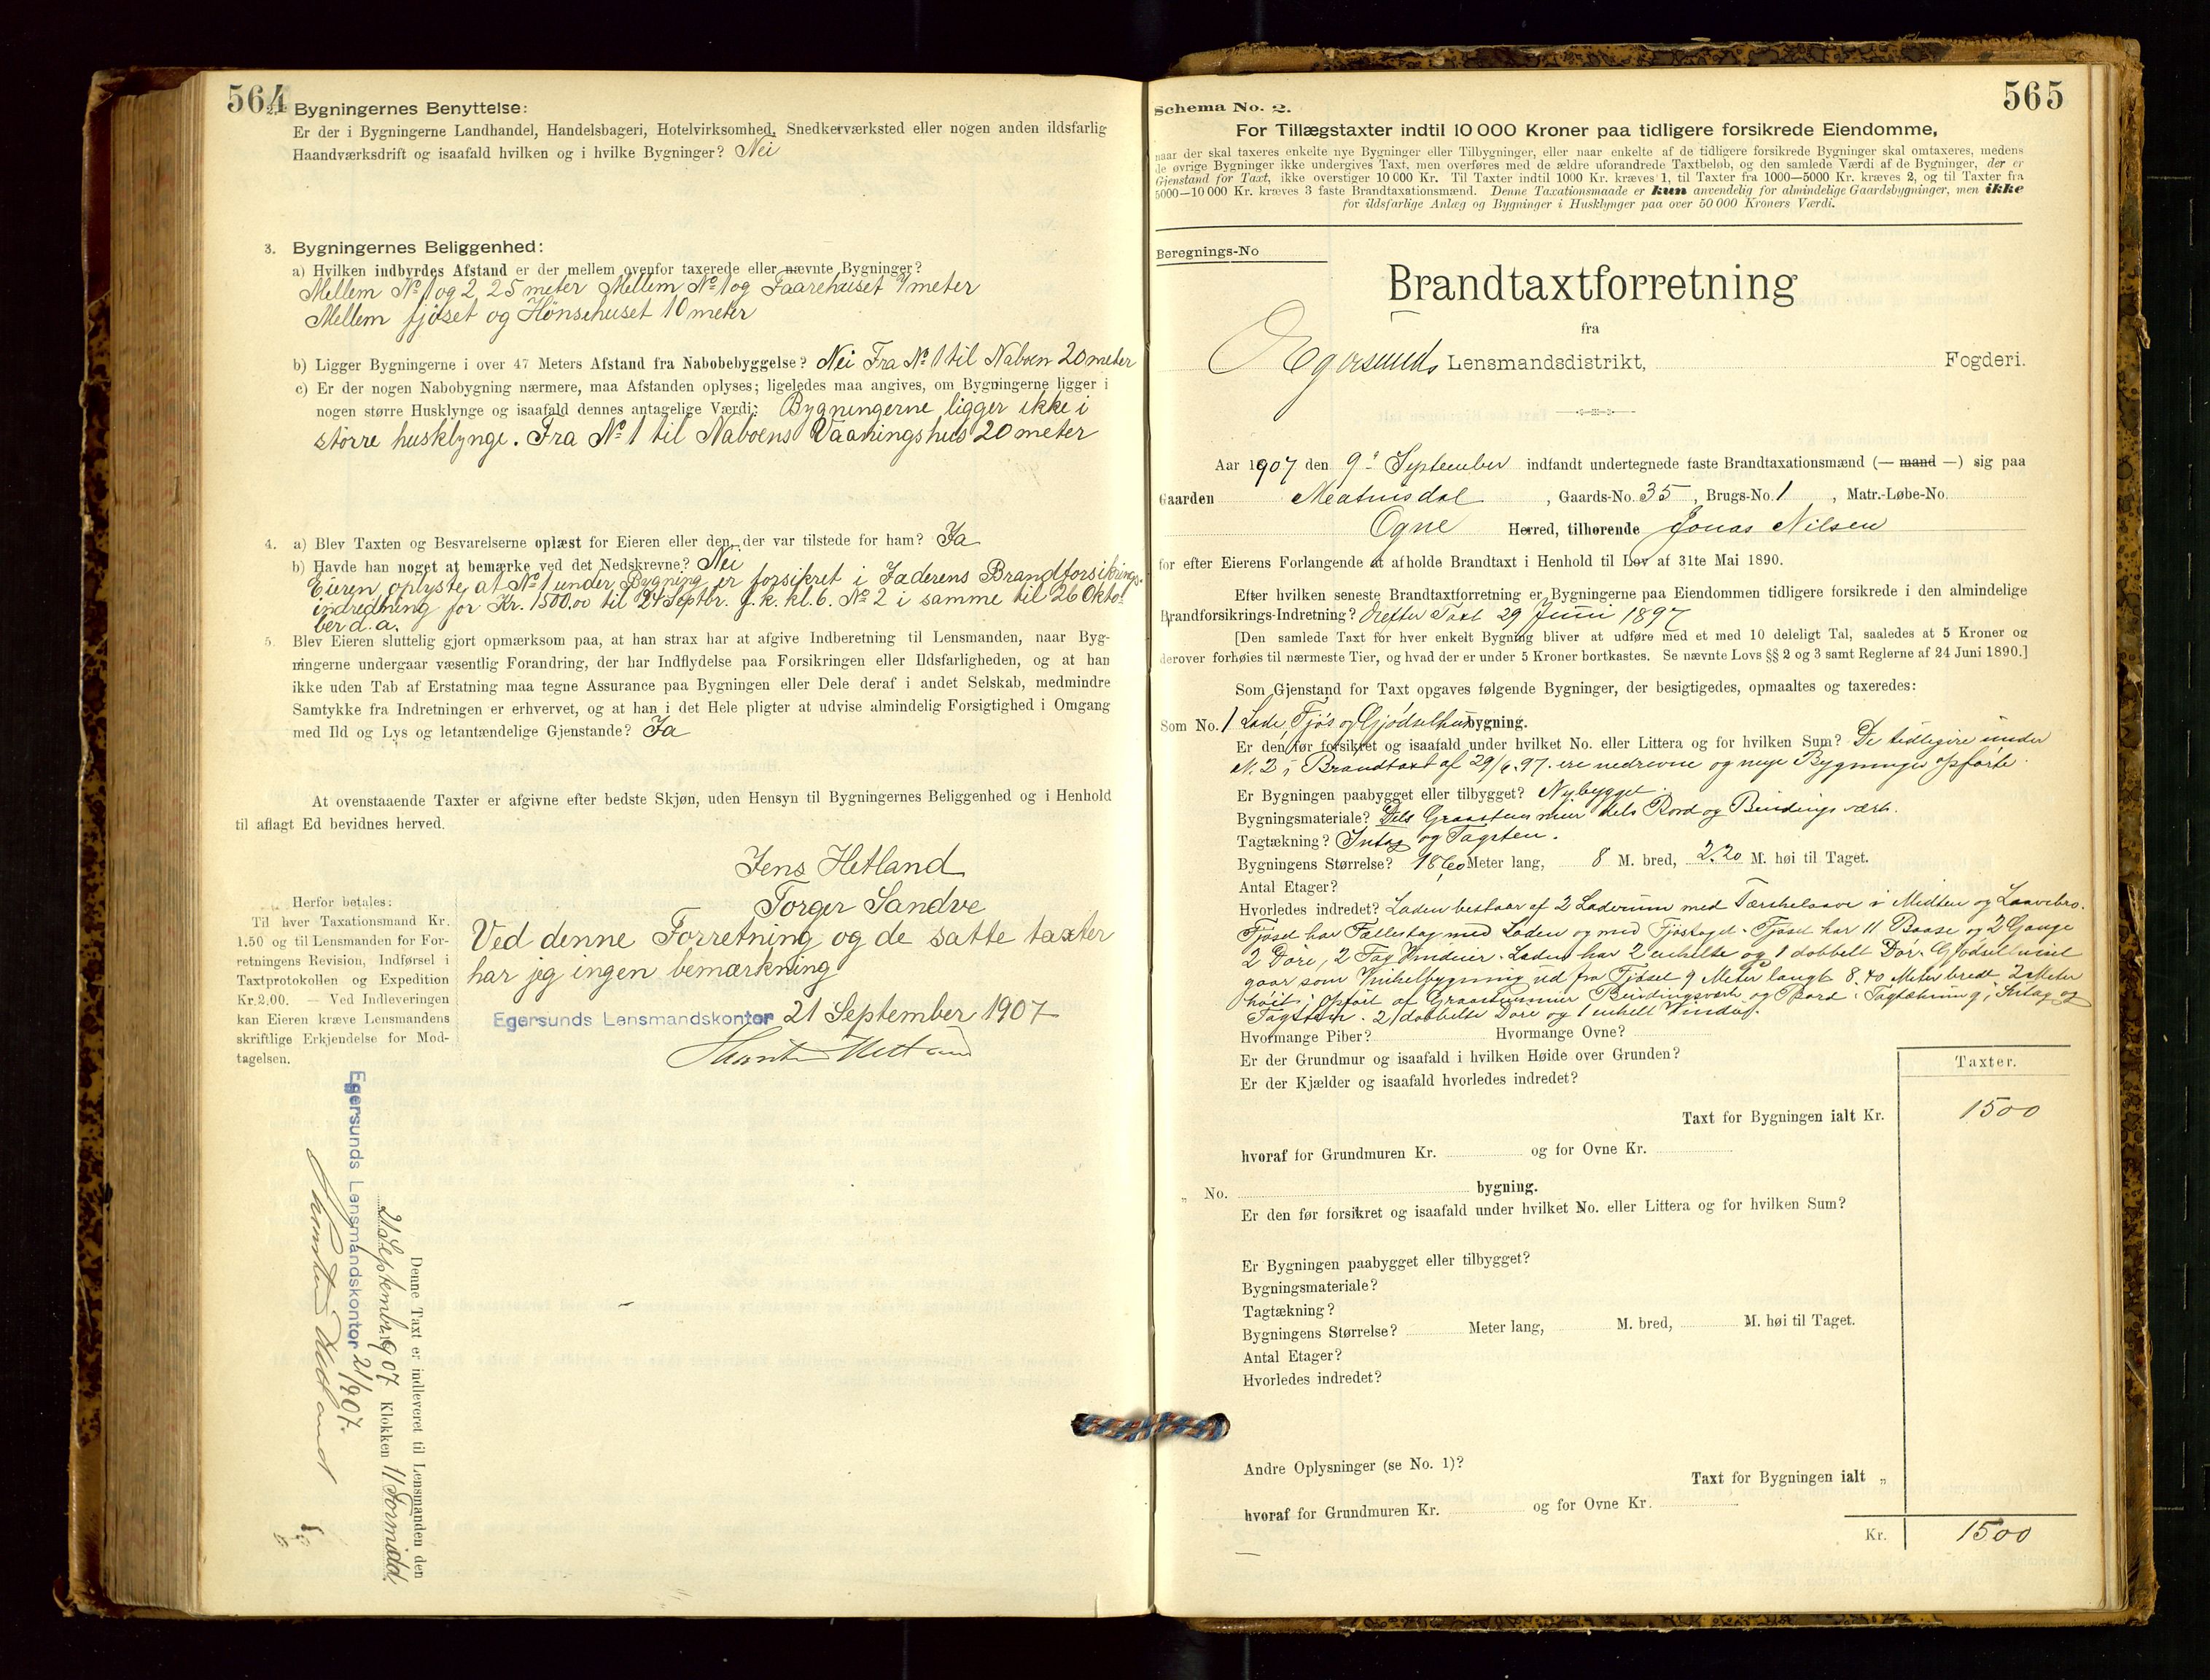 564
2. Bygningernes Benyttelse:
Er der i Bygningerne Landhandel, Handelsbageri, Hotelvirksomhed, Snedkerværksted eller nogen anden ildsfarlig
Haandværksdrift og isaafald hvilken og i hvilke Bygninger? Nei
3. Bygningernes Beliggenhed:
a) Hvilken indbyrdes Afstand er der mellem ovenfor taxerede eller nævnte Bygninger?
Mellem No 1 og 2, 25 meter Mellem No 1 og Faarehuset 9 meter
Mellem fjöset og Hönsehuset 10 meter
b) Ligger Bygningerne i over 47 Meters Afstand fra Nabobebyggelse? Nei Fra No 1 til Naboen 20 meter
c) Er der nogen Nabobygning nærmere, maa Afstanden oplyses; ligeledes maa angives, om Bygningerne ligger i
nogen større Husklynge og isaafald dennes antagelige Værdi: Bygningerne ligger ikke i
större husklynge. Fra No 1 til Naboens Vaaningshus 20 meter
4. a) Blev Taxten og Besvarelserne oplæst for Eieren eller den, der var tilstede for ham? Ja
b) Havde han noget at bemærke ved det Nedskrevne? Nei
Eieren oplyste at No 1 under Bygning er forsikret i Jæderens Brandforsikrings-
indredning for Kr. 1500.00 til 24 Septbr. f.k. kl. 6. No 2 i samme til 26 Okto-
ber d.a.
5. Blev Eieren sluttelig gjort opmærksom paa, at han strax har at afgive Indberetning til Lensmanden, naar Byg-
ningerne undergaar væsentlig Forandring, der har Indflydelse paa Forsikringen eller Ildsfarligheden, og at han
ikke uden Tab af Erstatning maa tegne Assurance paa Bygningen eller Dele deraf i andet Selskab, medmindre
Samtykke fra Indretningen er erhvervet, og at han i det Hele pligter at udvise almindelig Forsigtighed i Omgang
med Ild og Lys og letantændelige Gjenstande? Ja
At ovenstaaende Taxter er afgivne efter bedste Skjøn, uden Hensyn til Bygningernes Beliggenhed og i Henhold
til aflagt Ed bevidnes herved.
Jens Hetland
Torger Sandve
Herfor betales:
Til hver Taxationsmand Kr.
1.50 og til Lensmanden for For-
retningens Revision, Indførsel i
Taxtprotokollen og Expedition
Kr. 2.00. — Ved Indleveringen
kan Eieren kræve Lensmandens
skriftlige Erkjendelse for Mod-
tagelsen.
Ved denne Forretning og de satte taxter
har jeg ingen bemærkning
Egersunds Lensmandskontor 21 September 1907
Denne Taxt er indleveret til Lensmanden den
21 September 1907 Klokken 11 Formidd.
Egersunds Lensmandskontor 21/9 07.
565
Schema No. 2.
For Tillægstaxter indtil 10 000 Kroner paa tidligere forsikrede Eiendomme,
naar der skal taxeres enkelte nye Bygninger eller Tilbygninger, eller naar enkelte af de tidligere forsikrede Bygninger skal omtaxeres, medens
de øvrige Bygninger ikke undergives Taxt, men overføres med de ældre uforandrede Taxtbeløb, og den samlede Værdi af de Bygninger, der er
Gjenstand for Taxt, ikke overstiger 10 000 Kr. Til Taxter indtil 1000 Kr. kræves 1, til Taxter fra 1000—5000 Kr. kræves 2, og til Taxter fra
5000—10 000 Kr. kræves 3 faste Brandtaxationsmænd. Denne Taxationsmaade er kun anvendelig for almindelige Gaardsbygninger, men ikke
for ildsfarlige Anlæg og Bygninger i Husklynger paa over 50 000 Kroners Værdi.
Beregnings-No
Brandtaxtforretning
fra
Egersunds Lensmandsdistrikt, Fogderi.
Aar 1907 den 9de September indfandt undertegnede faste Brandtaxationsmænd (— mand —) sig paa
Gaarden , Gaards-No. 35, Brugs-No. 1, Matr.-Løbe-No.
Ogne Herred, tilhørende Jonas Nilsen
for efter Eierens Forlangende at afholde Brandtaxt i Henhold til Lov af 31te Mai 1890.
Efter hvilken seneste Brandtaxtforretning er Bygningerne paa Eiendommen tidligere forsikrede i den almindelige
Brandforsikrings-Indretning? Taxt 29 Juni 1897
[Den samlede Taxt for hver enkelt Bygning bliver at udføre med et med 10 deleligt Tal, saaledes at 5 Kroner og
derover forhøies til nærmeste Tier, og hvad der er under 5 Kroner bortkastes. Se nævnte Lovs §§ 2 og 3 samt Reglerne af 24 Juni 1890.]
Som Gjenstand for Taxt opgaves følgende Bygninger, der besigtigedes, opmaaltes og taxeredes:
Som No. 1 Lade, Fjös og Gjödselhusbygning.
Er den før forsikret og isaafald under hvilket No. eller Littera og for hvilken Sum? De tidligere under
N. 2 i Brandtaxt af 29/6.97. ere nedrevne og nye Bygninger opförte.
Er Bygningen paabygget eller tilbygget? Nybygget.
Bygningsmateriale? Dels Graastensmur dels Bord og Bindingsværk.
Tagtækning? og Tagsten.
Bygningens Størrelse? 18,60 Meter lang, 8 M. bred, 2.20 M. høi til Taget.
Antal Etager?
Hvorledes indredet? Laden bestaar af 2 Laderum med Tærskelaave i Midten og Laavebro.
Fjöset har Fællestag med Laden og med Fjöstaget. Fjöset har 11 Baase og 2 Gange
2 Döre, 2 Fag Vinduer. Laden har 2 enkelte og 1 dobbelt Dör. Gjödselhuset
gaar som Vinkelbygning ud fra Fjöset 9 Meter langt 8.40 Meter bredt 2 Meter
höit, opfört af Graastensmur Bindingsværk og Bord. Tagtækning og
Tagsten. 2 dobbelte Döre og 1 enkelt Vindu.
Hvormange Piber? Hvormange Ovne?
Er der Grundmur og isaafald i hvilken Høide over Grunden?
Er der Kjælder og isaafald hvorledes indredet?
Taxter.
Taxt for Bygningen ialt Kr. 1500
hvoraf for Grundmuren Kr. og for Ovne Kr.
„ No. bygning.
Er den før forsikret og isaafald under hvilket No. eller Littera og for hvilken Sum?
Er Bygningen paabygget eller tilbygget?
Bygningsmateriale?
Tagtækning?
Bygningens Størrelse? Meter lang, M. bred, M. høi til Taget.
Antal Etager?
Hvorledes indredet?
Andre Oplysninger (se No. 1)?
Taxt for Bygningen ialt „
hvoraf for Grundmuren Kr. og for Ovne Kr.
Kr. 1500